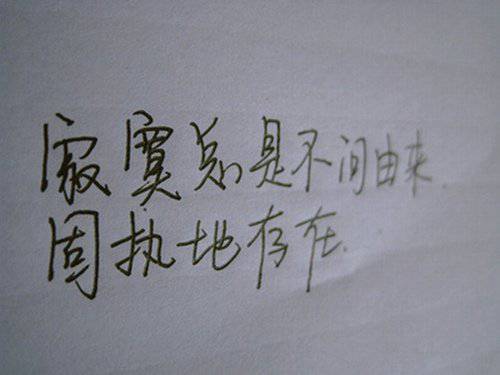 寂寞总是不问由来.
固执地存在.